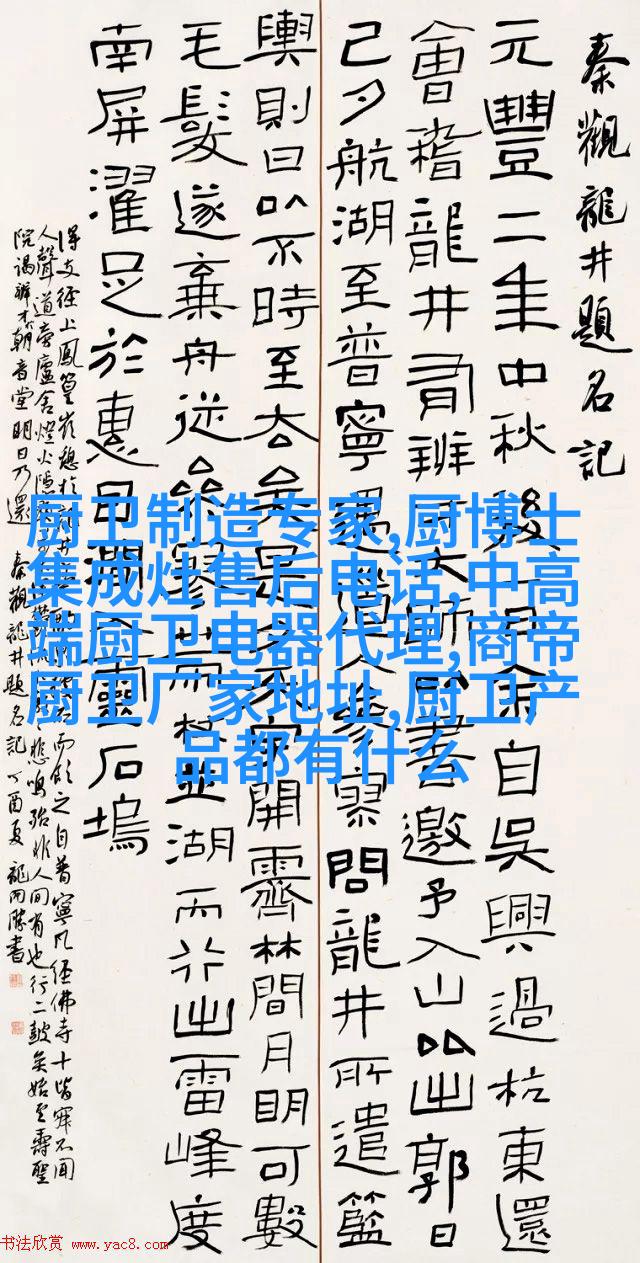 秦觀龍井題名記
元豐二年中秋後一日余自吳興過杭東還
會稽龍井有辨才大師以書邀予入山比出郭日
已夕航湖至普寧遇道人參寥問龍井所遣籃
輿則曰以不時至去矣是夕天宇開霽林間月明可數
毛髮遂棄舟從參寥而杖並湖而行出雷峰度
南屏濯足於惠因澗入靈石塢
得支徑上鳳篁嶺憩於龍井而飲之自普寧凡經佛寺十皆寂不聞
人聲道旁廬舍燈火隱悲鳴殆非人間有也行二鼓矣始至壽聖
院謁辨才於朝音堂明日乃還 秦觀龍井題名記 丁酉夏 龍開勝書
厨卫制造专家,厨博士
集成灶售后电话,中高
端厨卫电器代理,商帝
厨卫厂家地址,厨卫产
品都有什么
书法欣赏 www.yac8.com